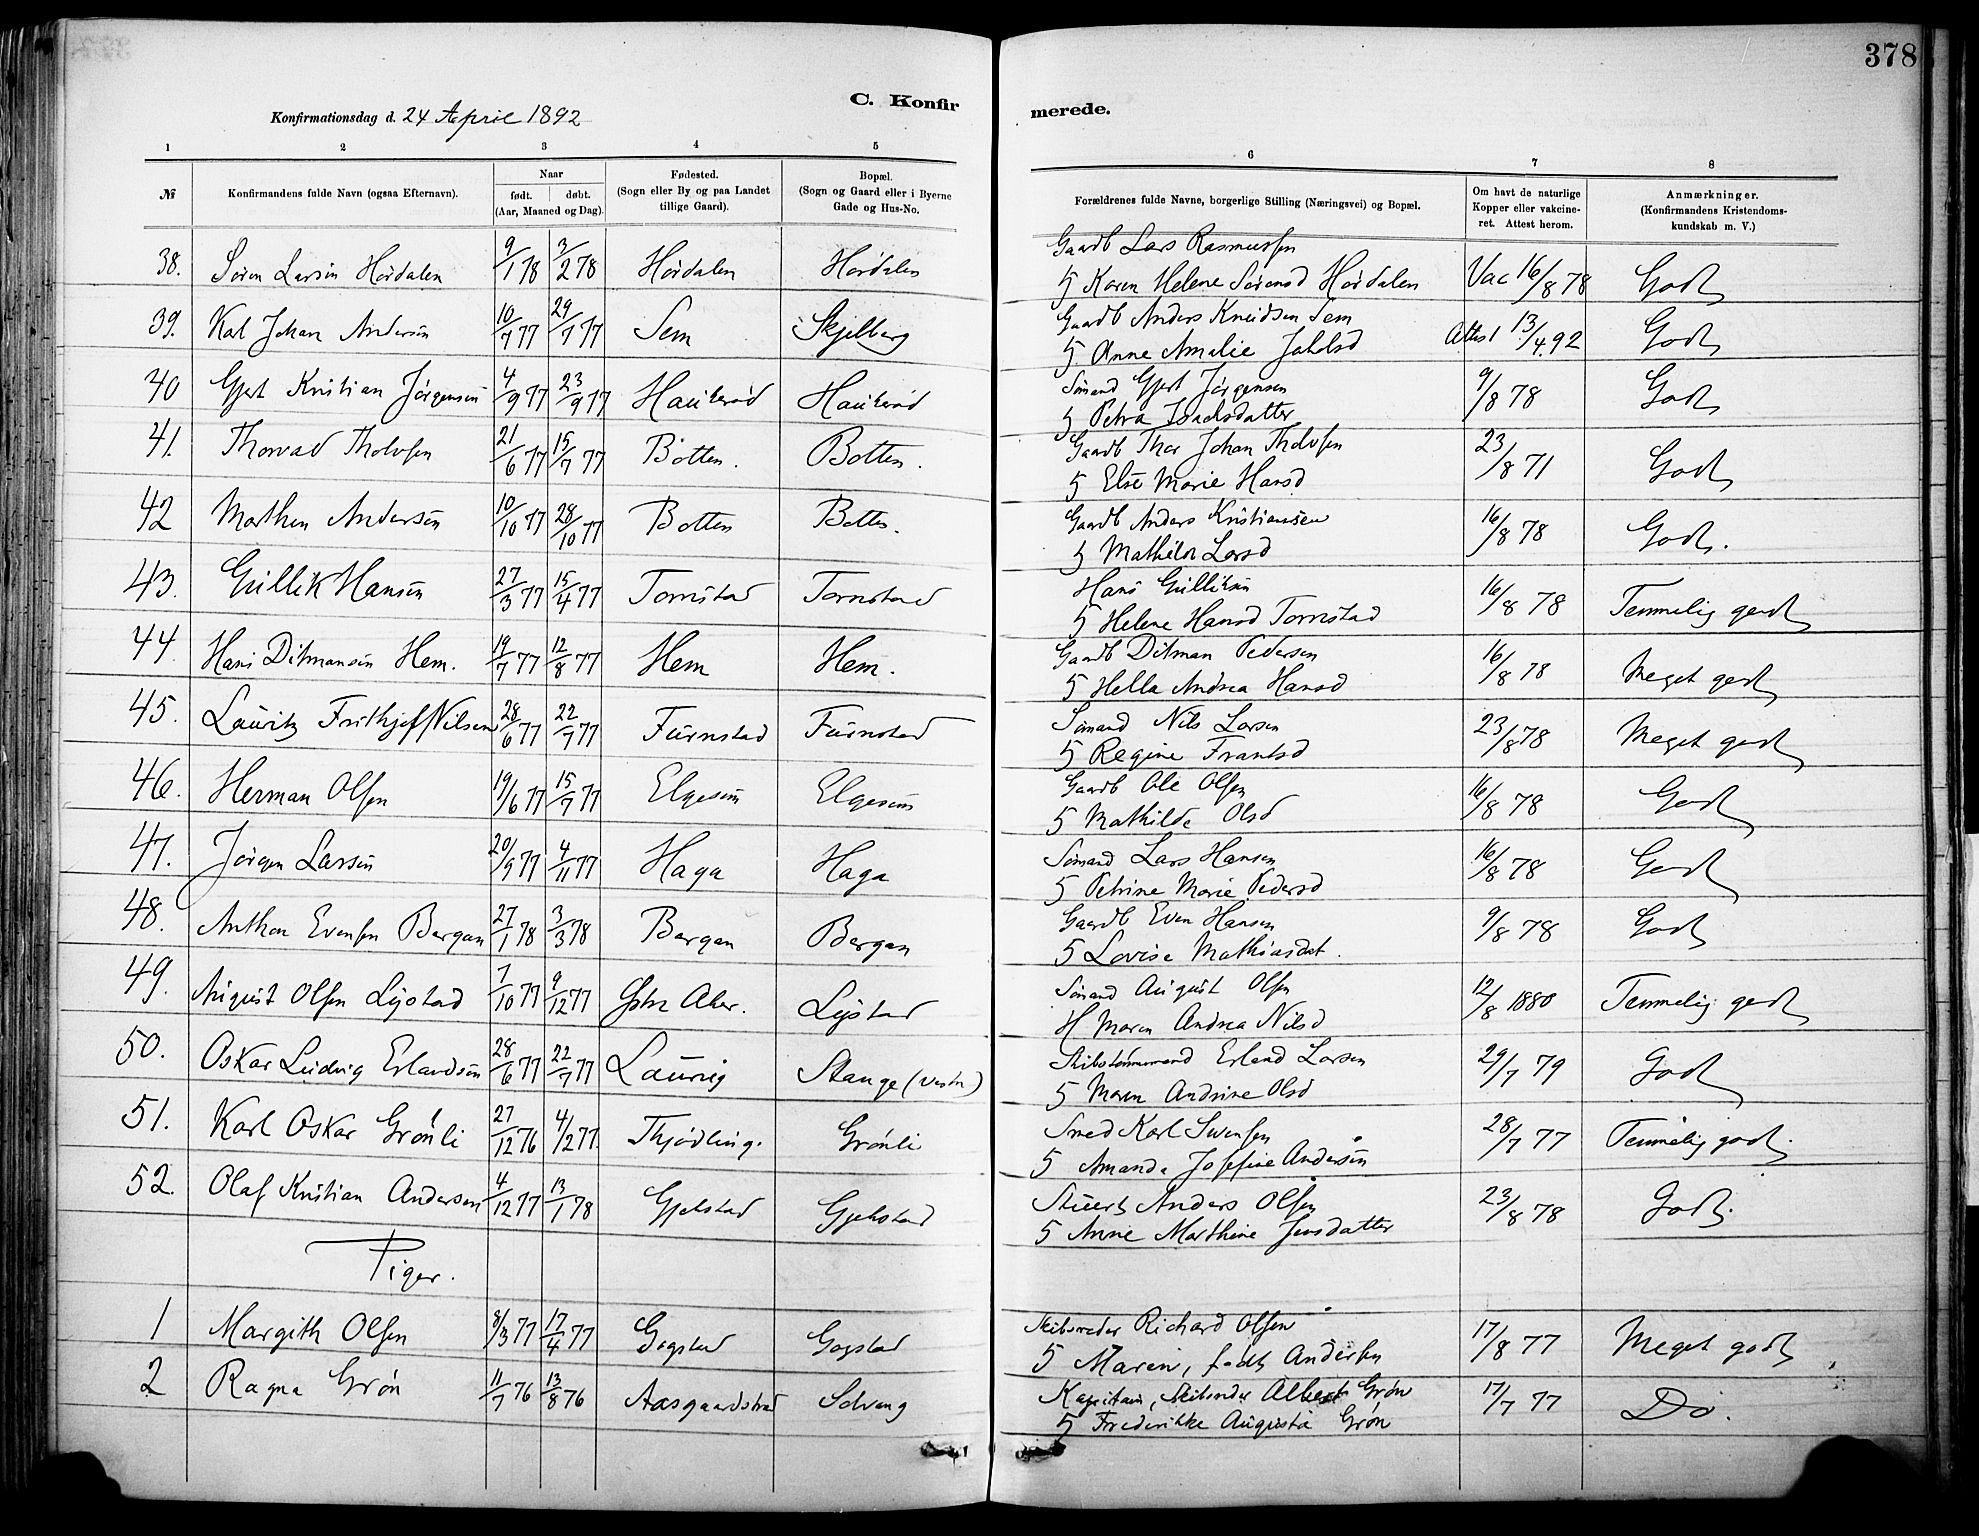 378
C. Konfir
merede.
Konfirmationsdag d. 24 April 1892
1 2 3 4 5 6 7 8
№ Konfirmandens fulde Navn (ogsaa Efternavn). Naar født. døbt. (Aar, Maaned og Dag). Fødested. (Sogn eller By og paa Landet tillige Gaard). Bopæl. (Sogn og Gaard eller i Byerne Gade og Hus-No. Forældrenes fulde Navne, borgerlige Stilling (Næringsvei) og Bopæl. Om havt de naturlige Kopper eller vakcineret. Attest herom. Anmærkninger. (Konfirmandens Kristendomskundskab m. V.)
Gaardb Lars Rasmussen
38. Søren Larsen Hørdalen 9/1 78 3/2 78 Hørdalen Hørdalen
5 Karen Helene Sørensd Hørdalen Vac 16/8 78 Godt
Gaardb Anders Sem
39. Karl Johan Andersen 10/7 77 29/7 77 Sem Skjelberg
5 Anne Amalie Attest 13/4 92 Godt
40 Gjert Kristian Jørgensen 4/9 77 23/9 77 Haukerød Haukerød
Sømand Gjert Jørgensen 9/8 78 Godt
5 Petra Isachsdatter
41. Thorvad Tholvsen 21/6 77 15/7 77 Botten. Botten.
Gaardb Thor Johan Tholvsen 23/8 71 Godt
5 Else Marie Hansd
42 Marthen Andersen 10/10 77 28/10 77 Botten Botten.
Gaardb Anders Kristiansen 16/8 78 Godt.
5 Mathilde Larsd
43. Gullik Hansen 27/3 77 15/4 77 Tornstad Tornstad
Hans Gulliksen 16/8 78 Temmelig godt
5 Helene Hansd Tornstad
44 Hans Ditmansen Hem. 19/7 77 12/8 77 Hem Hem.
Gaardb Ditman Pedersen 16/8 78 Meget godt
5 Hella Andrea Hansd
45. Lauritz Frithjof Nilsen 28/6 77 22/7 77 Furustad Furustad
Sømand Nils Larsen 23/8 78 Meget godt
5 Regine Frantsd
46. Herman Olsen 19/6 77 15/7 77 Elgesem Elgesem
Gaardb Ole Olsen 16/8 78 Godt
5 Mathilde Olsd
47. Jørgen Larsen 20/9 77 4/11 77 Haga Haga
Sømand Lars Hansen 16/8 78 Godt
5 Petrine Marie Pedersd
48. Anthon Evensen Bergan 27/1 78 3/3 78 Bergan Bergan
Gaardb Even Hansen 9/8 78 Godt
5 Lovise Mathiasdat.
49. August Olsen Lystad 7/10 77 9/12 77 Østre Aker. Lystad
Sømand August Olsen 12/8 1880 Temmelig godt
H Maren Andrea Nilsd
50. Oskar Ludvig Erlandsen 28/6 77 22/7 77 Laurvig Stange (vestre)
Skibstømmermand Erland Larsen 29/7 79 Godt
5 Maren Andrine Olsd
51. Karl Oskar Grønli 27/12 76 4/2 77 Thjødling. Grønli
Smed Karl Svensen 28/7 77 Temmelig godt.
5 Amanda Josefine Andersen
52. Olaf Kristian Andersen 4/12 77 13/1 78 Gjekstad Gjekstad
Stuert Anders Olsen 23/8 78 Godt.
5 Anne Marthine Jensdatter
Piger.
1 Margith Olsen 8/3 77 17/4 77 Gogstad Gogstad
Skibsreder Richard Olsen 17/8 77 Meget godt
5 Maren, født Andersen
2 Ragna Grøn 11/7 76 13/8 76 Aasgaardstrad Solvang
Kapitain, Skibsreder Albert Grøn 17/7 77 Do.
5 Frederikke Augusta Grøn